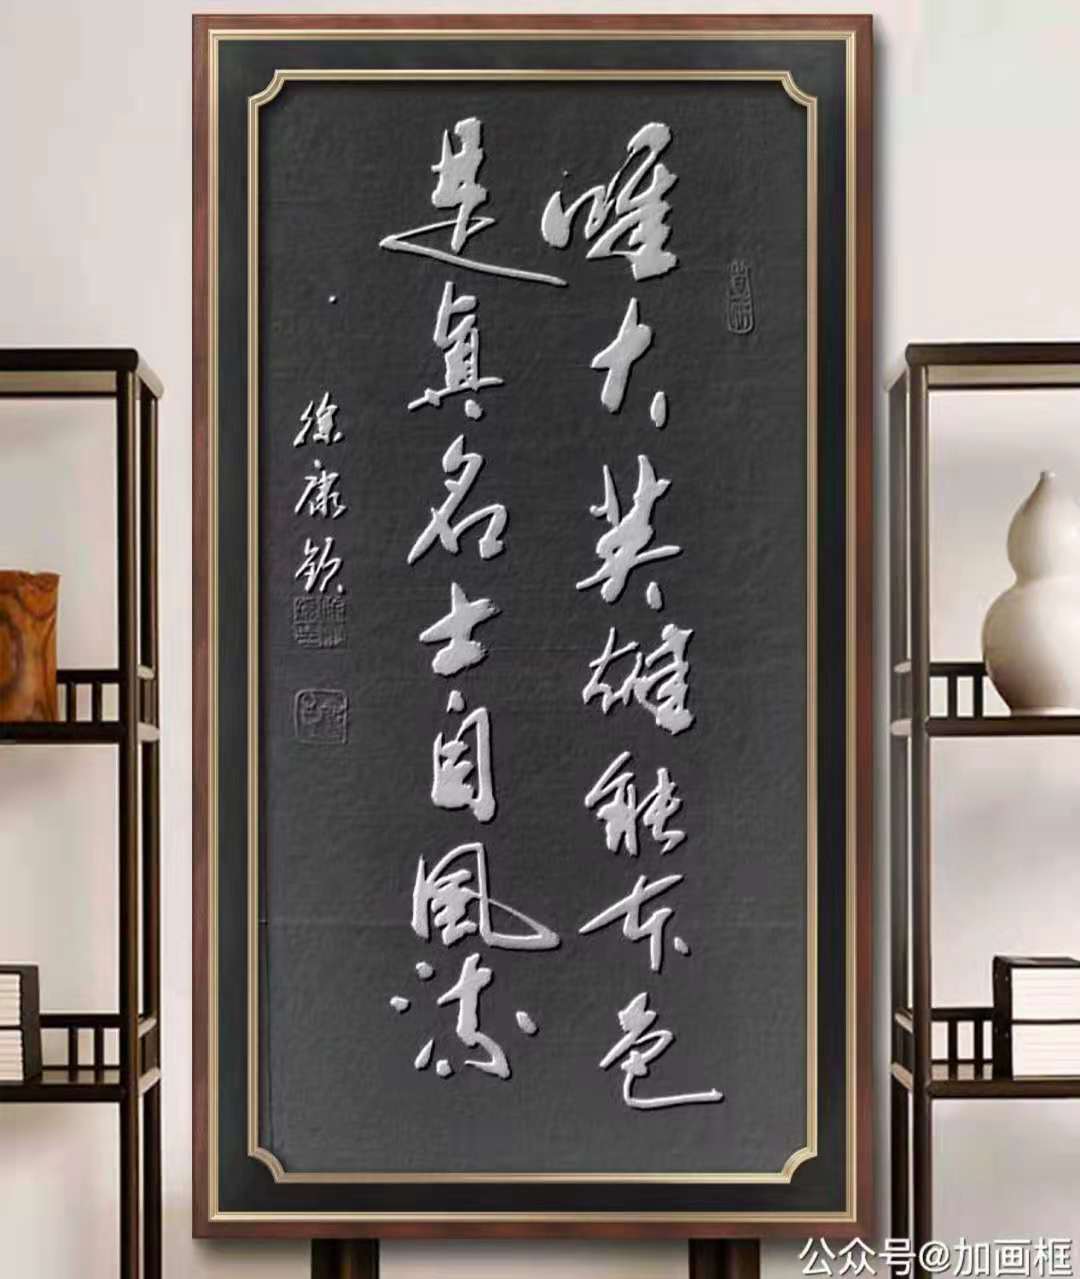 唯大英雄能本色
是真名士自风流
徐康钦
公众号@加画框